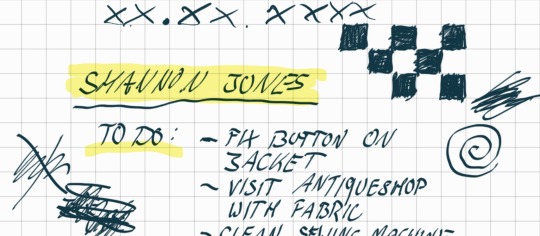 XX.XX.XXXX
SHANNON JONES
TO DO: - FIX BUTTON ON
JACKET
~ VISIT ANTIQUESHOP
WITH FABRIC
~ CLEAN SEWING MACHINE